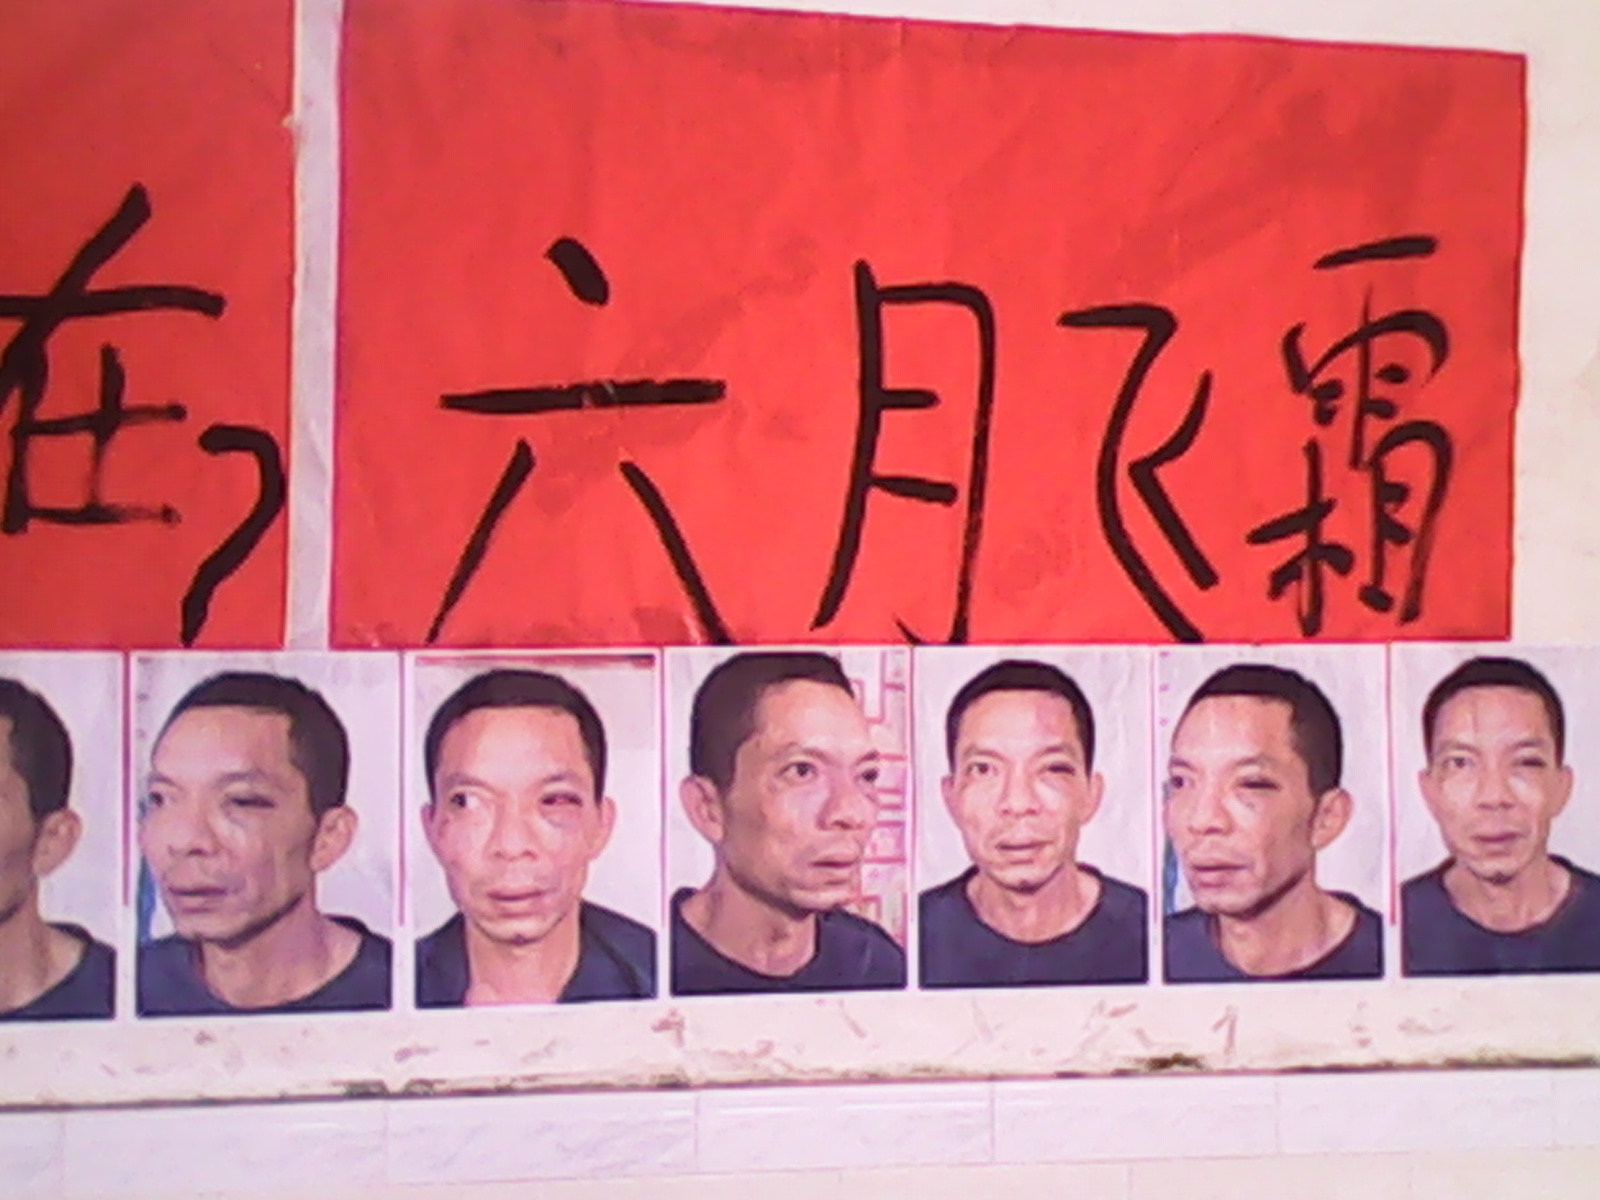 在? 六月飞霜